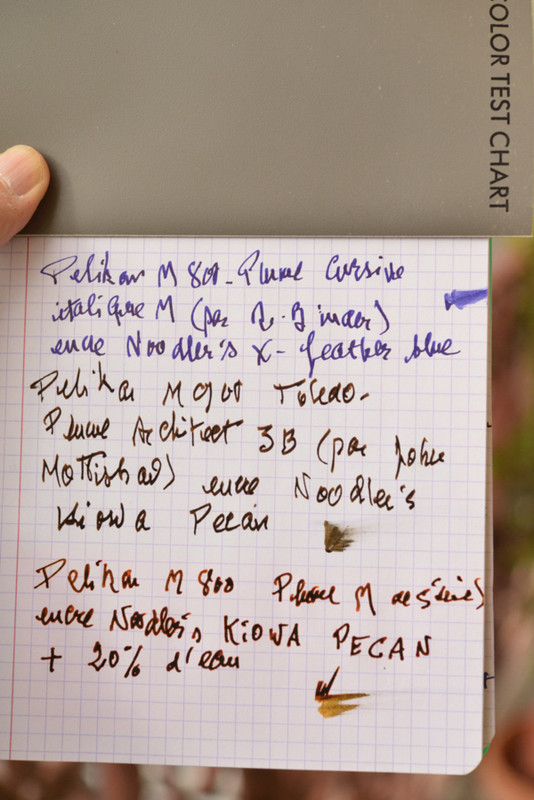 COLOR TEST CHART
Pelikan M 800 - Plume Cursive
italique M (par R. Binder)
encre Noodler's X-feather blue
Pelikan M900 Toledo -
Plume Architect 3B (par John
Mottishaw) encre Noodler's
Kiowa Pecan
Pelikan M 800 Plume M de série)
encre Noodler's KIOWA PECAN
+ 20% d'eau